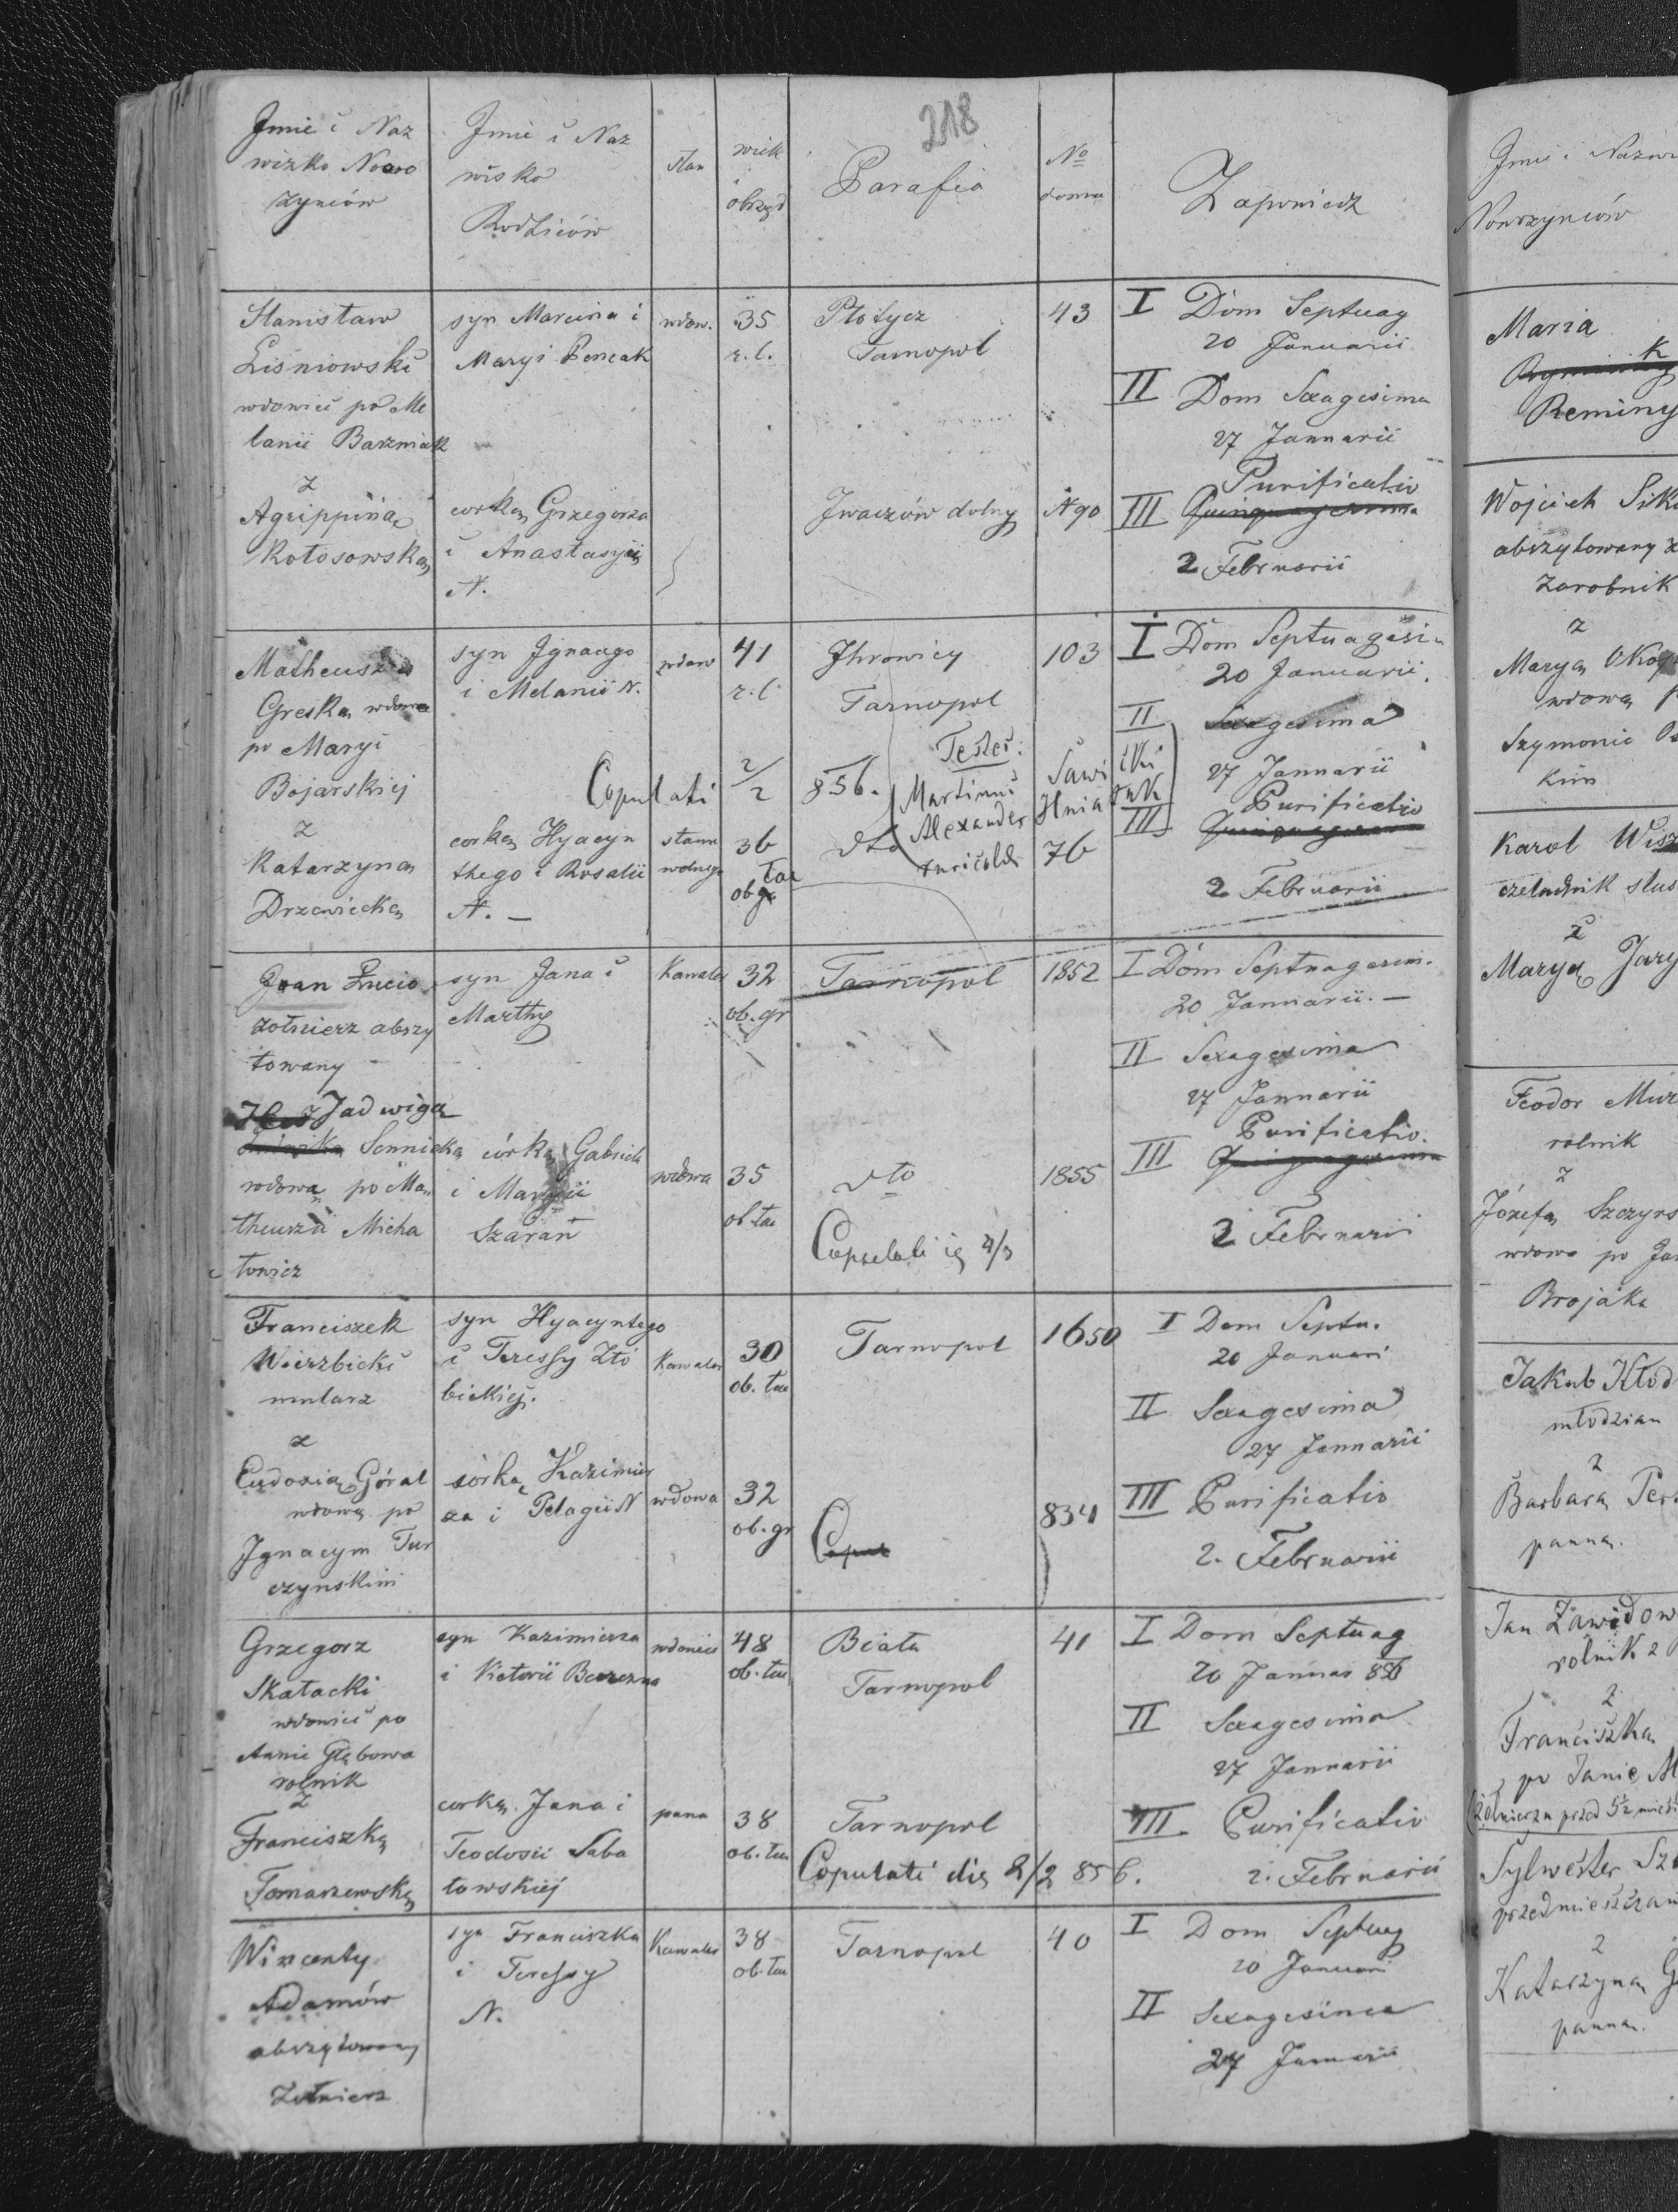 218
Jmie i Naz
wizko Nowo
żyńców
Jmie i Naz
wisko
Rodziców
stan
wiek
i
obrząd
Parafia
No
domu
Zapowiedz
Stanisław
Liśniowski
wdowiec po Me
lanii Barzniak
z
Agrippiną
Kołosowską
syn Marcina i
Maryi Pencak
corką Grzegorza
i Anastasyi
N.
wdow.
35
r. l.
Płotycz
Tarnopol
Jwaczów dolny
43
N 90
I Dom Septuag
20 Januarii
II Dom Sexagesima
27 Januarii
Purificatio
III Quinquagesima
2 Februarii
Matheusz
Greska wdowa
po Maryi
Bojarskiej
z
Katarzyną
Drzewiecką
syn Jgnaago
i Melanii N.
Copulati 2/2 856.
corką Hyacyn
thego i Rosalii
N. —
wdow
stanu
wolnego
41
r. l.
36
ob. tac
Jhrowicy
Tarnopol
Testes:
Martinus Sawi
Alexander Hnia tuk
dto
103
76
I Dom Septuagesi
20 Januarii.
II Sexagesima
27 Januarii
Purificatio
III Quinquagesima
2 Februarii
Joan Łucio
żołnierz abszy
towany
z Jadwigą
Sennicką
wdową po Ma
theuszu Micha
łowicz
syn Jana i
Marthy
córką Gabriela
i Maryi
Szaran
Kawaler
wdowa
32
ob. gr
35
ob tac
Tarnopol
dto
Copulati ie 4/3
1852
1855
I Dóm Septuagesim.
20 Januarii. —
II Sexagesima
27 Januarii
Purificatio.
III Quinquagesima
2 Februarii
Franciszek
Wierzbicki
mularz
z
Eudoxią Góral
wdową po
Jgnacym Tur
czynskim
syn Hyacyntego
i Teressy Zło
bickiej.
córką Kazimier
za i Pelagii N
Kawaler
wdowa
30
ob. tac
32
ob. gr
Tarnopol
Copul
1650
834
I Dom Septu.
20 Januari
II Sexagesima
27 Januarii
III Purificatio
2. Februarii
Grzegorz
Skałacki
wdowiec po
Annie Głębowa
rolnik
z
Franciszką
Tomaszewską
syn Kazimierza
i Victorii
corką Jana i
Teodosii Saba
towskiej
wdowiec
pana
48
ob. tac
38
ob. tac
Biała
Tarnopol
Tarnopol
Copulati die 2/2 856.
41
I Dom Septuag
20 Januar 856
II Sexagesima
27 Januarii
III Purificatio
2. Februarii
Wincenty
Adamów
abszytowany
żołnierz
syn Franciszka
i Teressy
N.
Kawaler
38
ob. tac
Tarnopol
40
I Dom Septuag
20 Januari
II Sexagesima
27 Januarii
Jmie i Nazwi
Nowożyńców
Maria
Reminy
Wojciech Sik
abszytowany
zarobnik
z
Maryą Oko
wdową
Szymonie
kim
Karol Wisz
czeladnik slus
z
Maryą Jary
Feodor
rolnik
z
Józefą Szczyrs
wdowa po Jan
Brojaka
Jakub Kłod
młodzian
z
Barbarą Per
panną.
Jan Zawidow
rolnik z
z
Franciszką
po Janie M
żołnierzu przed 5 1/2
Sylwester Sz
przedmieszczan
z
Katarzyną G
panną.